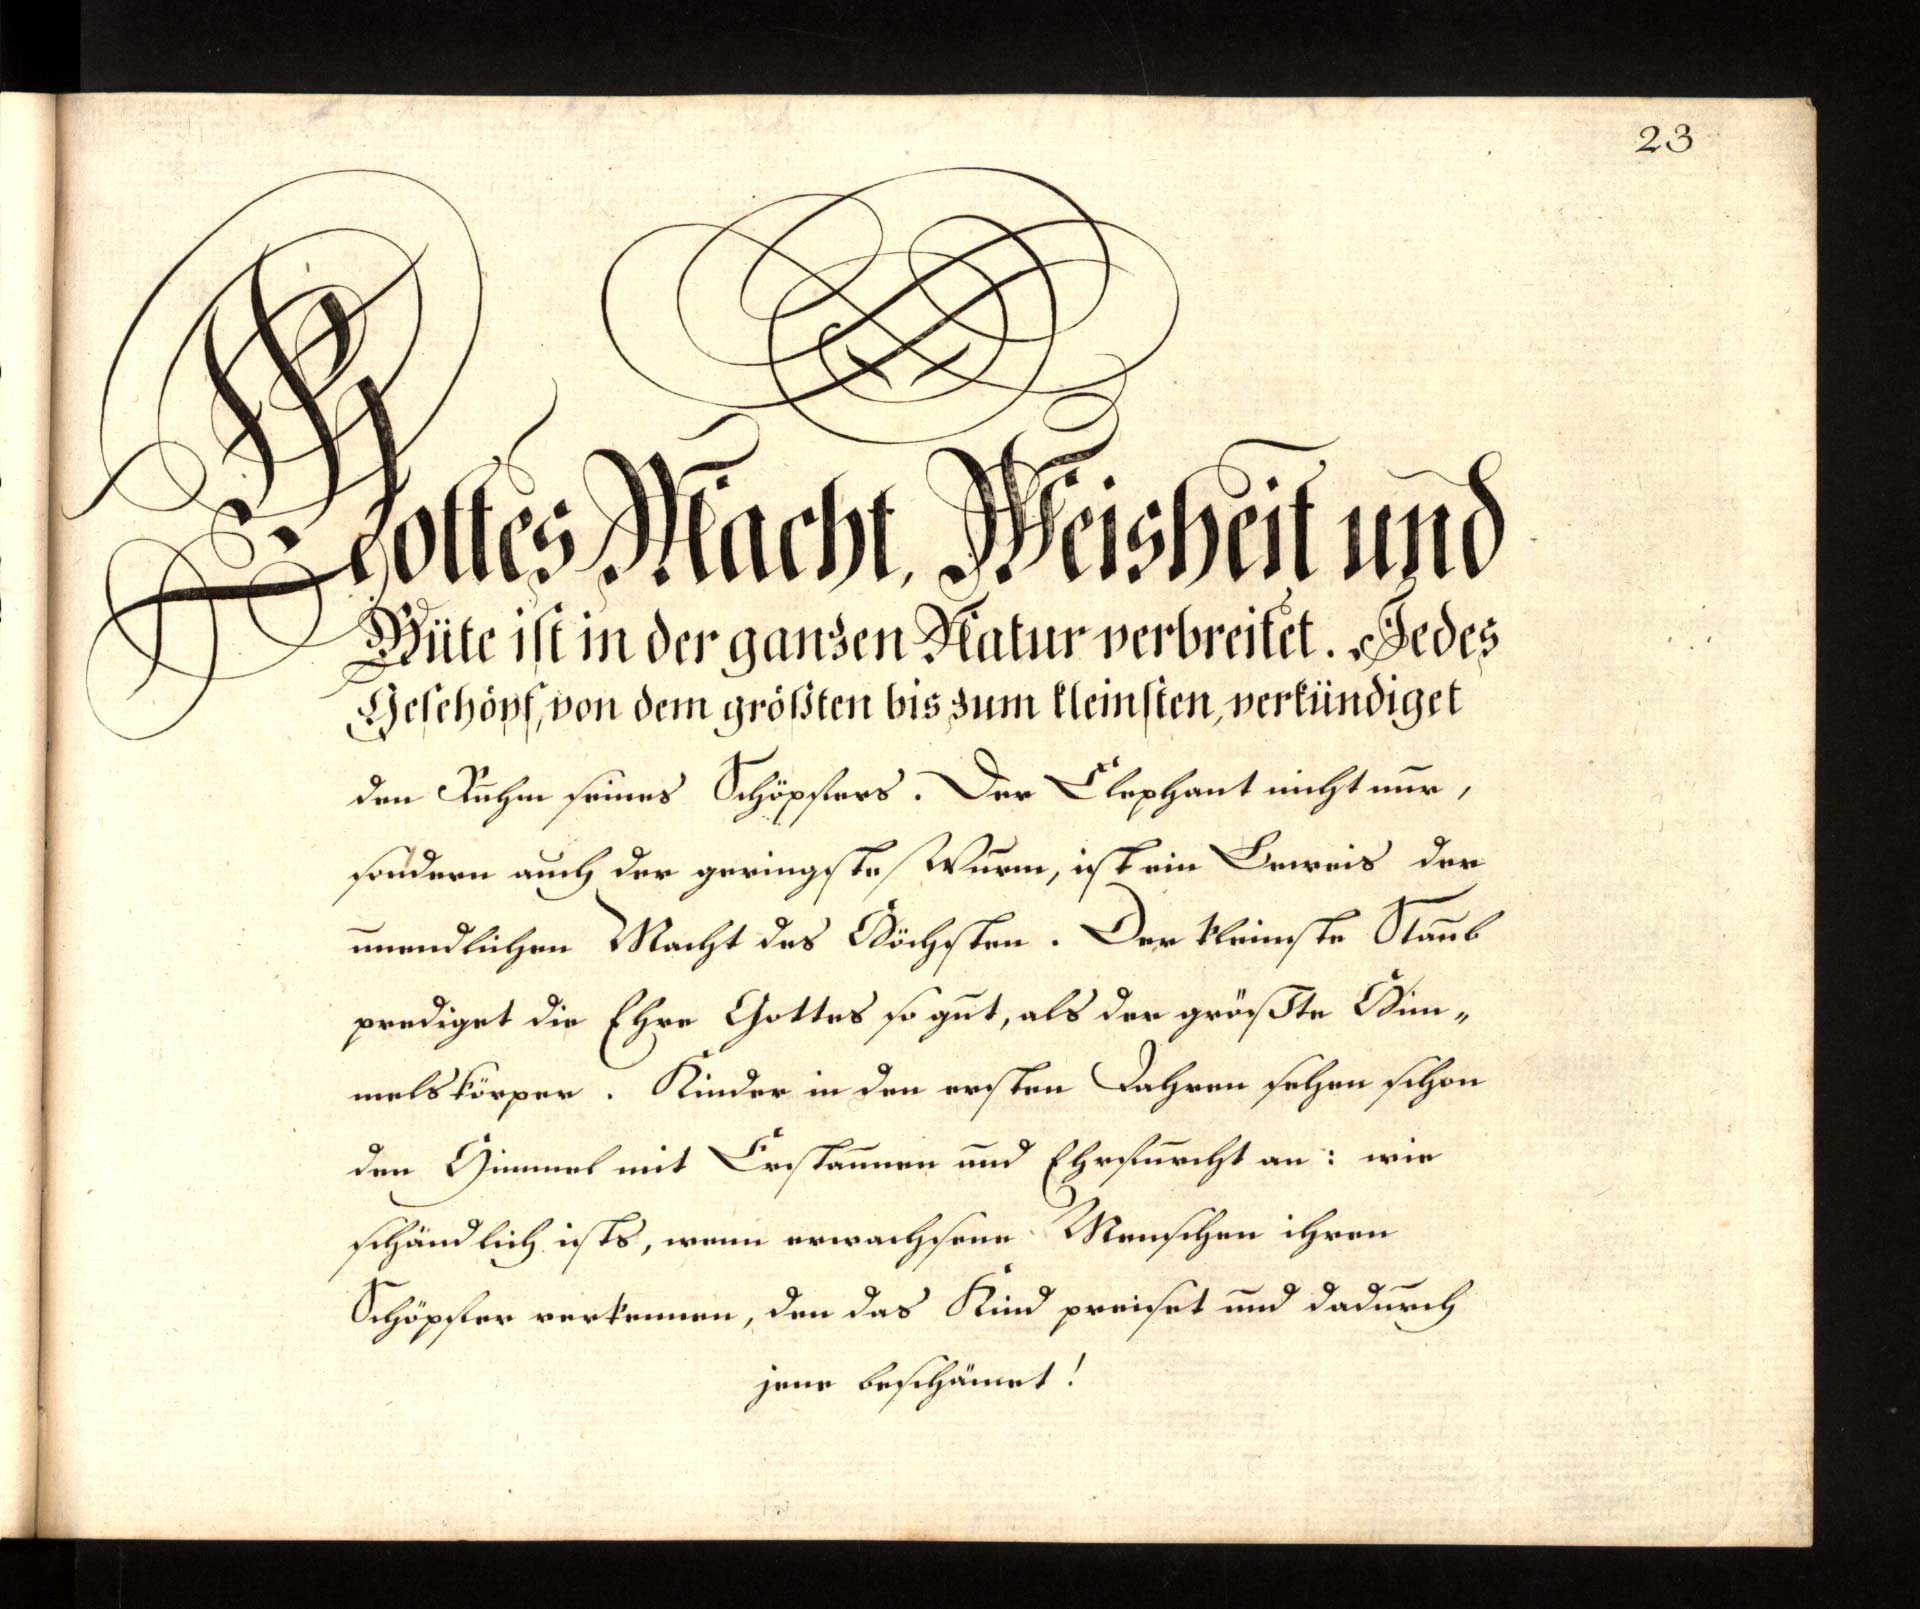 23
Gottes Macht, Weisheit und
Güte ist in der ganzen Natur verbreitet. Jedes
Geschöpf, von dem größten bis zum kleinsten, verkündiget
den Ruhm seines Schöpfers. Der Elephant nicht nur,
sondern auch der geringste Wurm, ist ein Beweis der
unendlichen Macht des Höchsten. Der kleinste Staub
prediget die Ehre Gottes so gut, als der größte Him„
melskörper. Kinder in den ersten Jahren sehen schon
den Himmel mit Erstaunen und Ehrfurcht an: wie
schändlich ists, wenn erwachsene Menschen ihren
Schöpfer verkennen, den das Kind preiset und dadurch
jene beschämet!